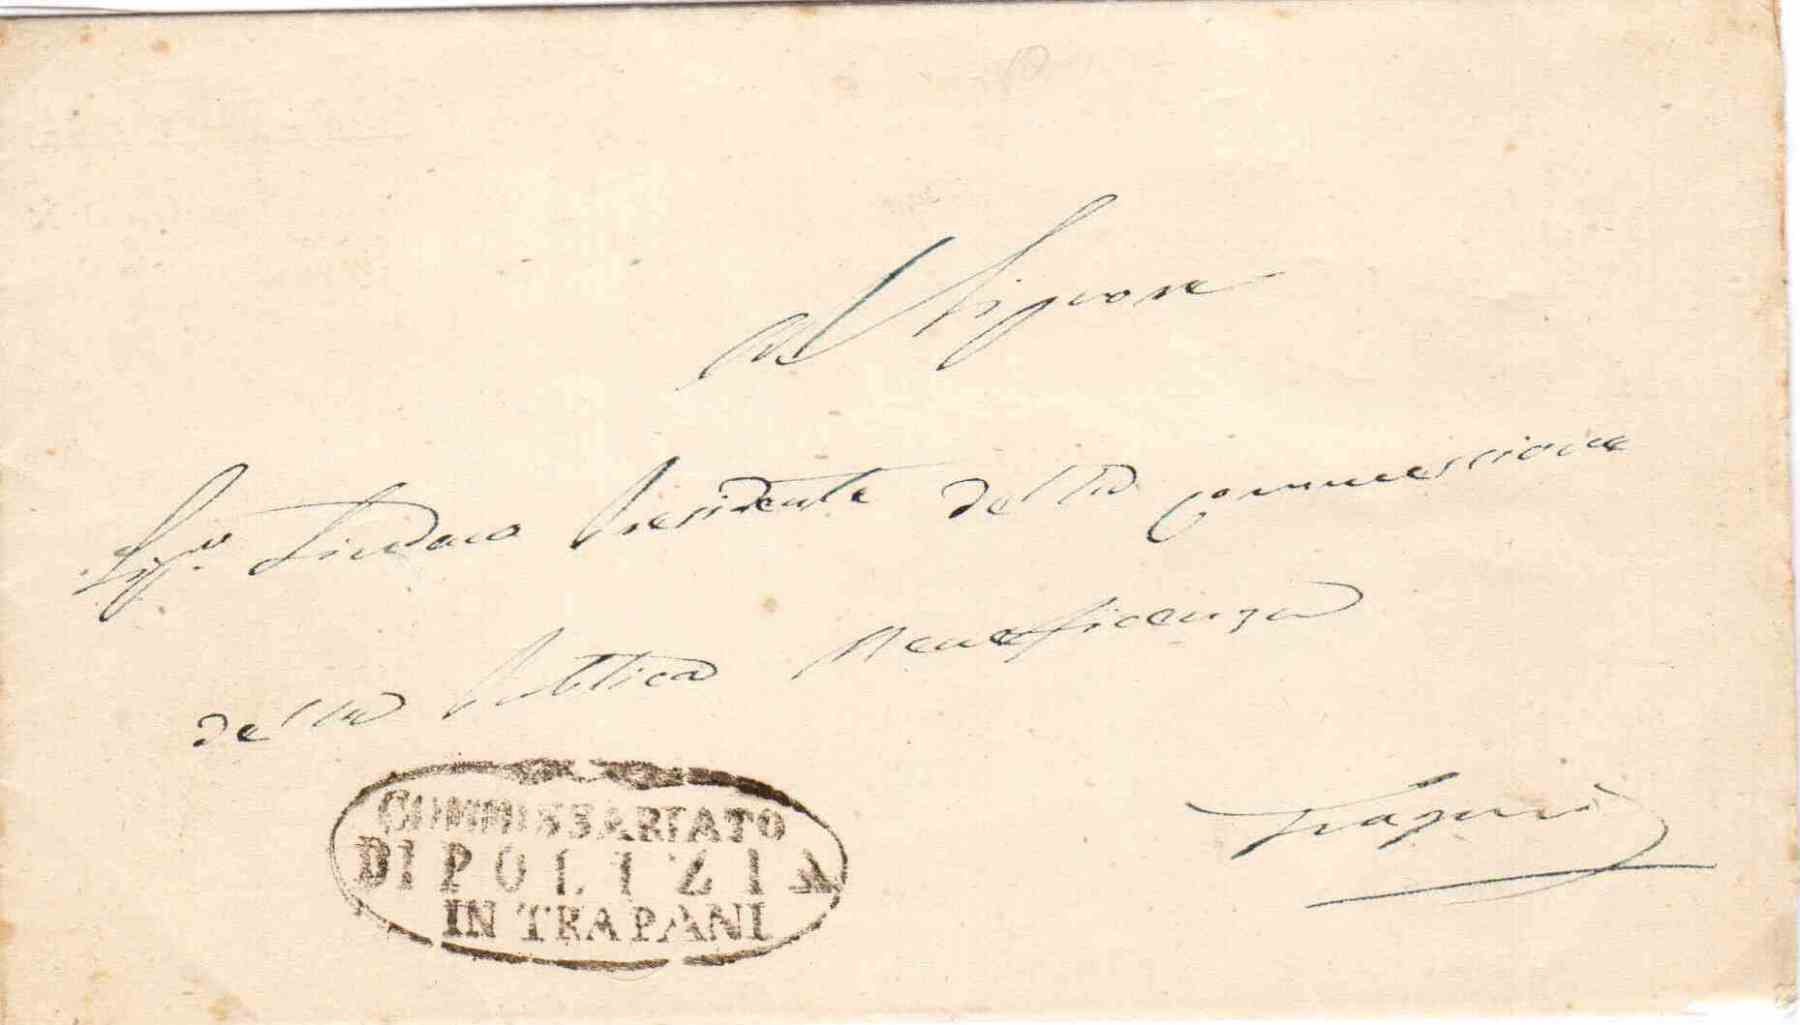 Al Signore
Sig.re Sindaco Presidente della Commessione
della Publica Beneficenza
Trapani
COMMISSARIATO
DI POLIZIA
IN TRAPANI